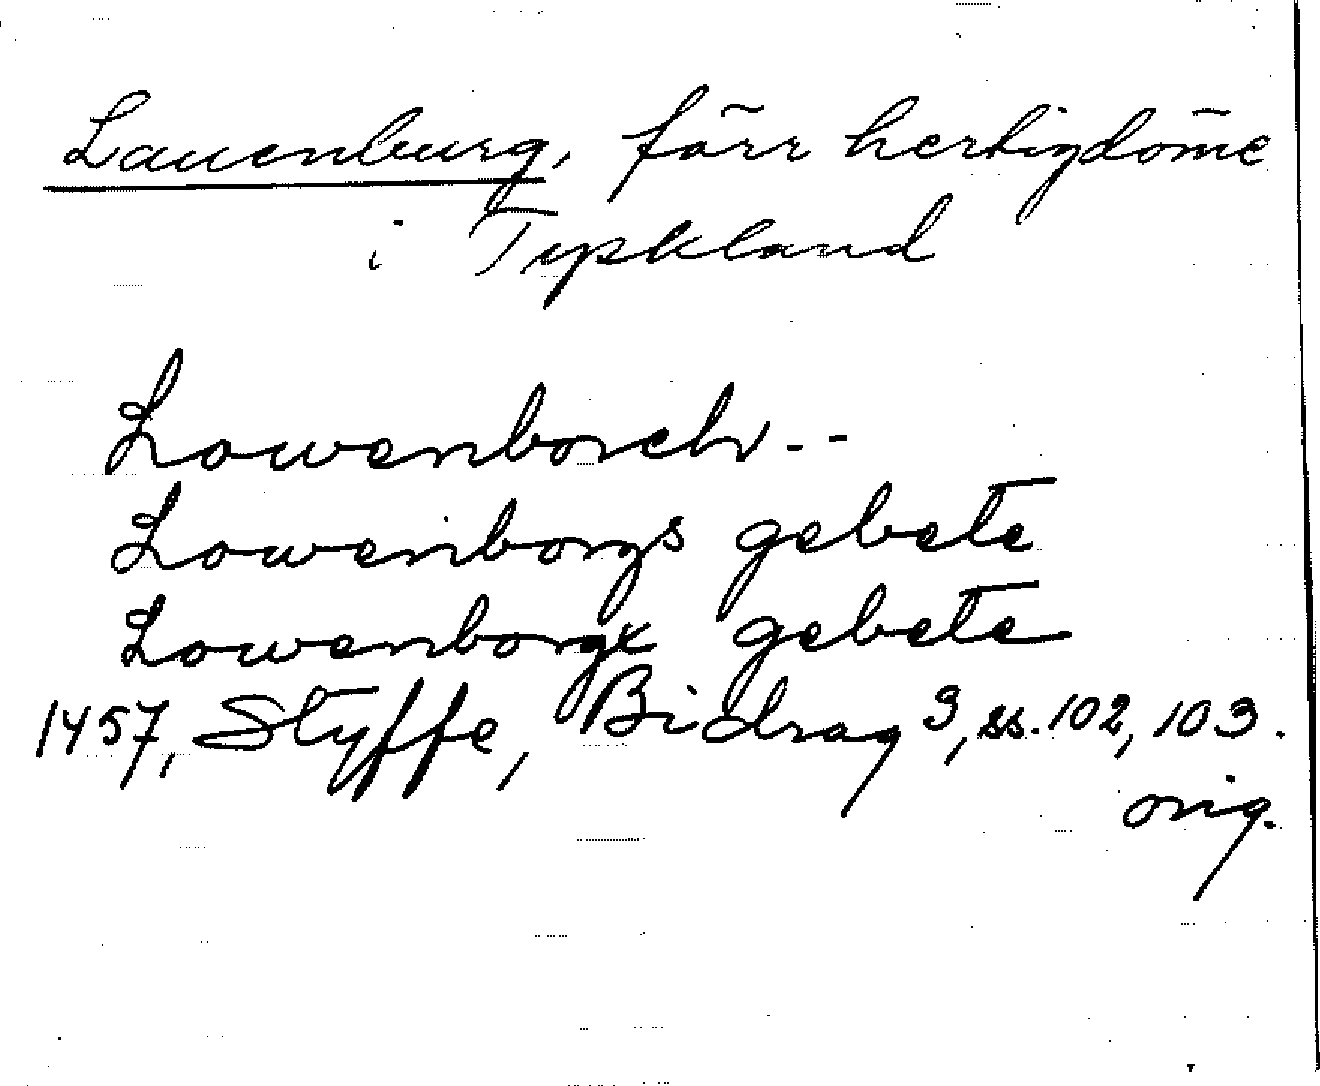 Lauenburg, förr hertigdöme
i Tyskland
Lowenborch--
Lowenborgs gebete
Lowenborgx gebete
1457, Styffe, Bidrag 3, ss. 102, 103.
orig.